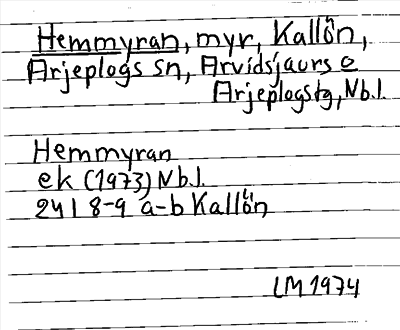 Hemmyran, myr, Kallön,
Arjeplogs sn, Arvidsjaurs o
Arjeplogs tg, Nb.l.
Hemmyran
ek (1973) Nb.l.
24 I 8-9 a-b Kallön
LM 1974